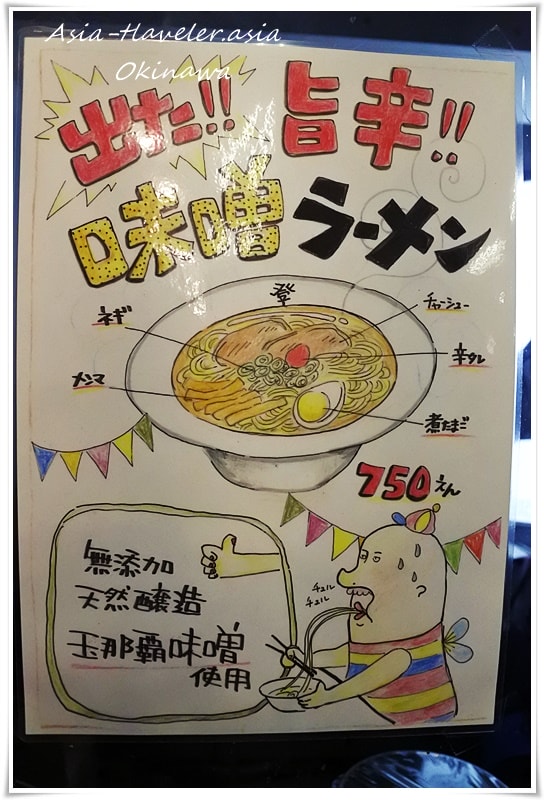 Asia-Traveler.asia
Okinawa
出た!! 旨辛!!
味噌ラーメン
登
ネギ
チャーシュー
メンマ
辛タレ
煮たまご
750えん
無添加
天然醸造
玉那覇味噌
使用
チュル
チュル